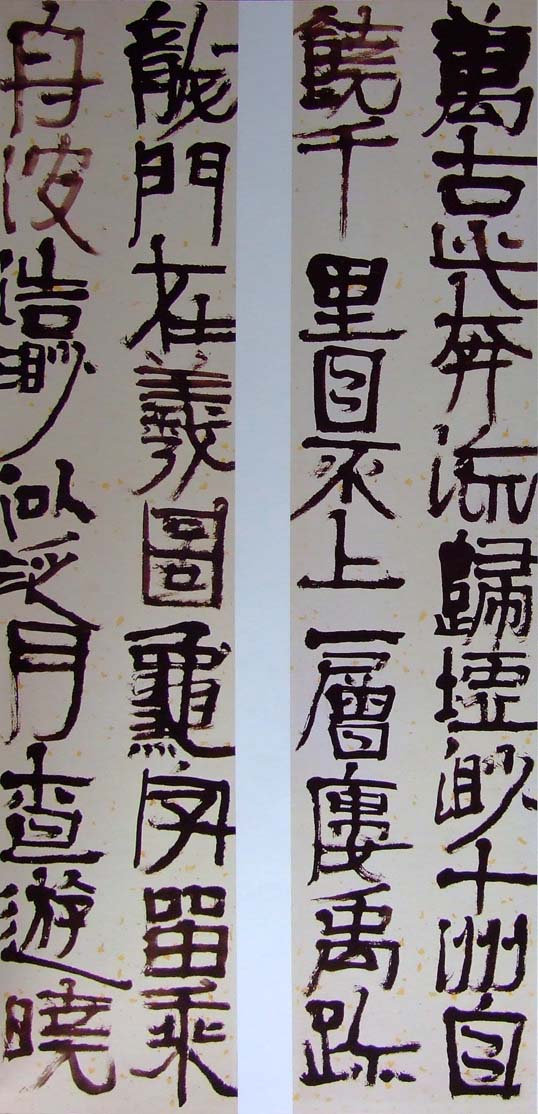 萬古此奔流歸墟渺十洲自
饒千里目不上一層廔禹跡
龍門在羲圖龜字留乘
舟波浩渺似泛月查遊曉